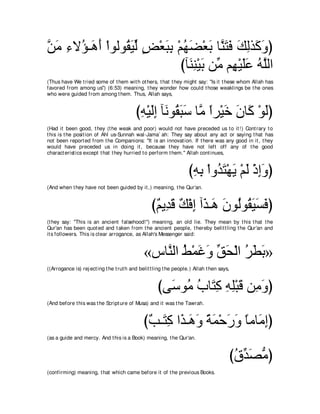 (وَكَذٰلِكَ فَتَنَّا بَعْضَهُمْ بِبَعْضٍ لِّيَقُولُواْ أَهَـؤُلاءِ مَنَّ
اللَّهُ عَلَيْهِم مِّن بَيْنِنَآ)
(Thus have We tried some of them with others, that they might say: "Is it these whom Allah has
favored from among us'') (6:53) meaning, they wonder how could those weaklings be the ones
who were guided from among them. Thus, Allah says,
(لَوْ كَانَ خَيْراً مَّا سَبَقُونَآ إِلَيْهِ)
(Had it been good, they (the weak and poor) would not have preceded us to it!) Contrary to
this is the position of Ahl us-Sunnah wal-Jama`ah: They say about any act or saying that has
not been reported from the Companions: "It is an innovation. If there was any good in it, they
would have preceded us in doing it, because they have not left off any of the good
characteristics except that they hurried to perform them.'' Allah continues,
(وَإِذْ لَمْ يَهْتَدُواْ بِهِ)
(And when they have not been guided by it,) meaning, the Qur'an.
(فَسَيَقُولُونَ هَـذَآ إِفْكٌ قَدِيمٌ)
(they say: "This is an ancient falsehood!'') meaning, an old lie. They mean by this that the
Qur'an has been quoted and taken from the ancient people, thereby belittling the Qur'an and
its followers. This is clear arrogance, as Allah's Messenger said:
«بَطَرُ الْحَقِّ وَغَمْطُ النَّاس»
((Arrogance is) rejecting the truth and belittling the people.) Allah then says,
(وَمِن قَبْلِهِ كِتَابُ مُوسَى)
(And before this was the Scripture of Musa) and it was the Tawrah.
(إِمَاماً وَرَحْمَةً وَهَـذَا كِتَـبٌ)
(as a guide and mercy. And this is a Book) meaning, the Qur'an.
(مُّصَدِّقٌ)
(confirming) meaning, that which came before it of the previous Books.